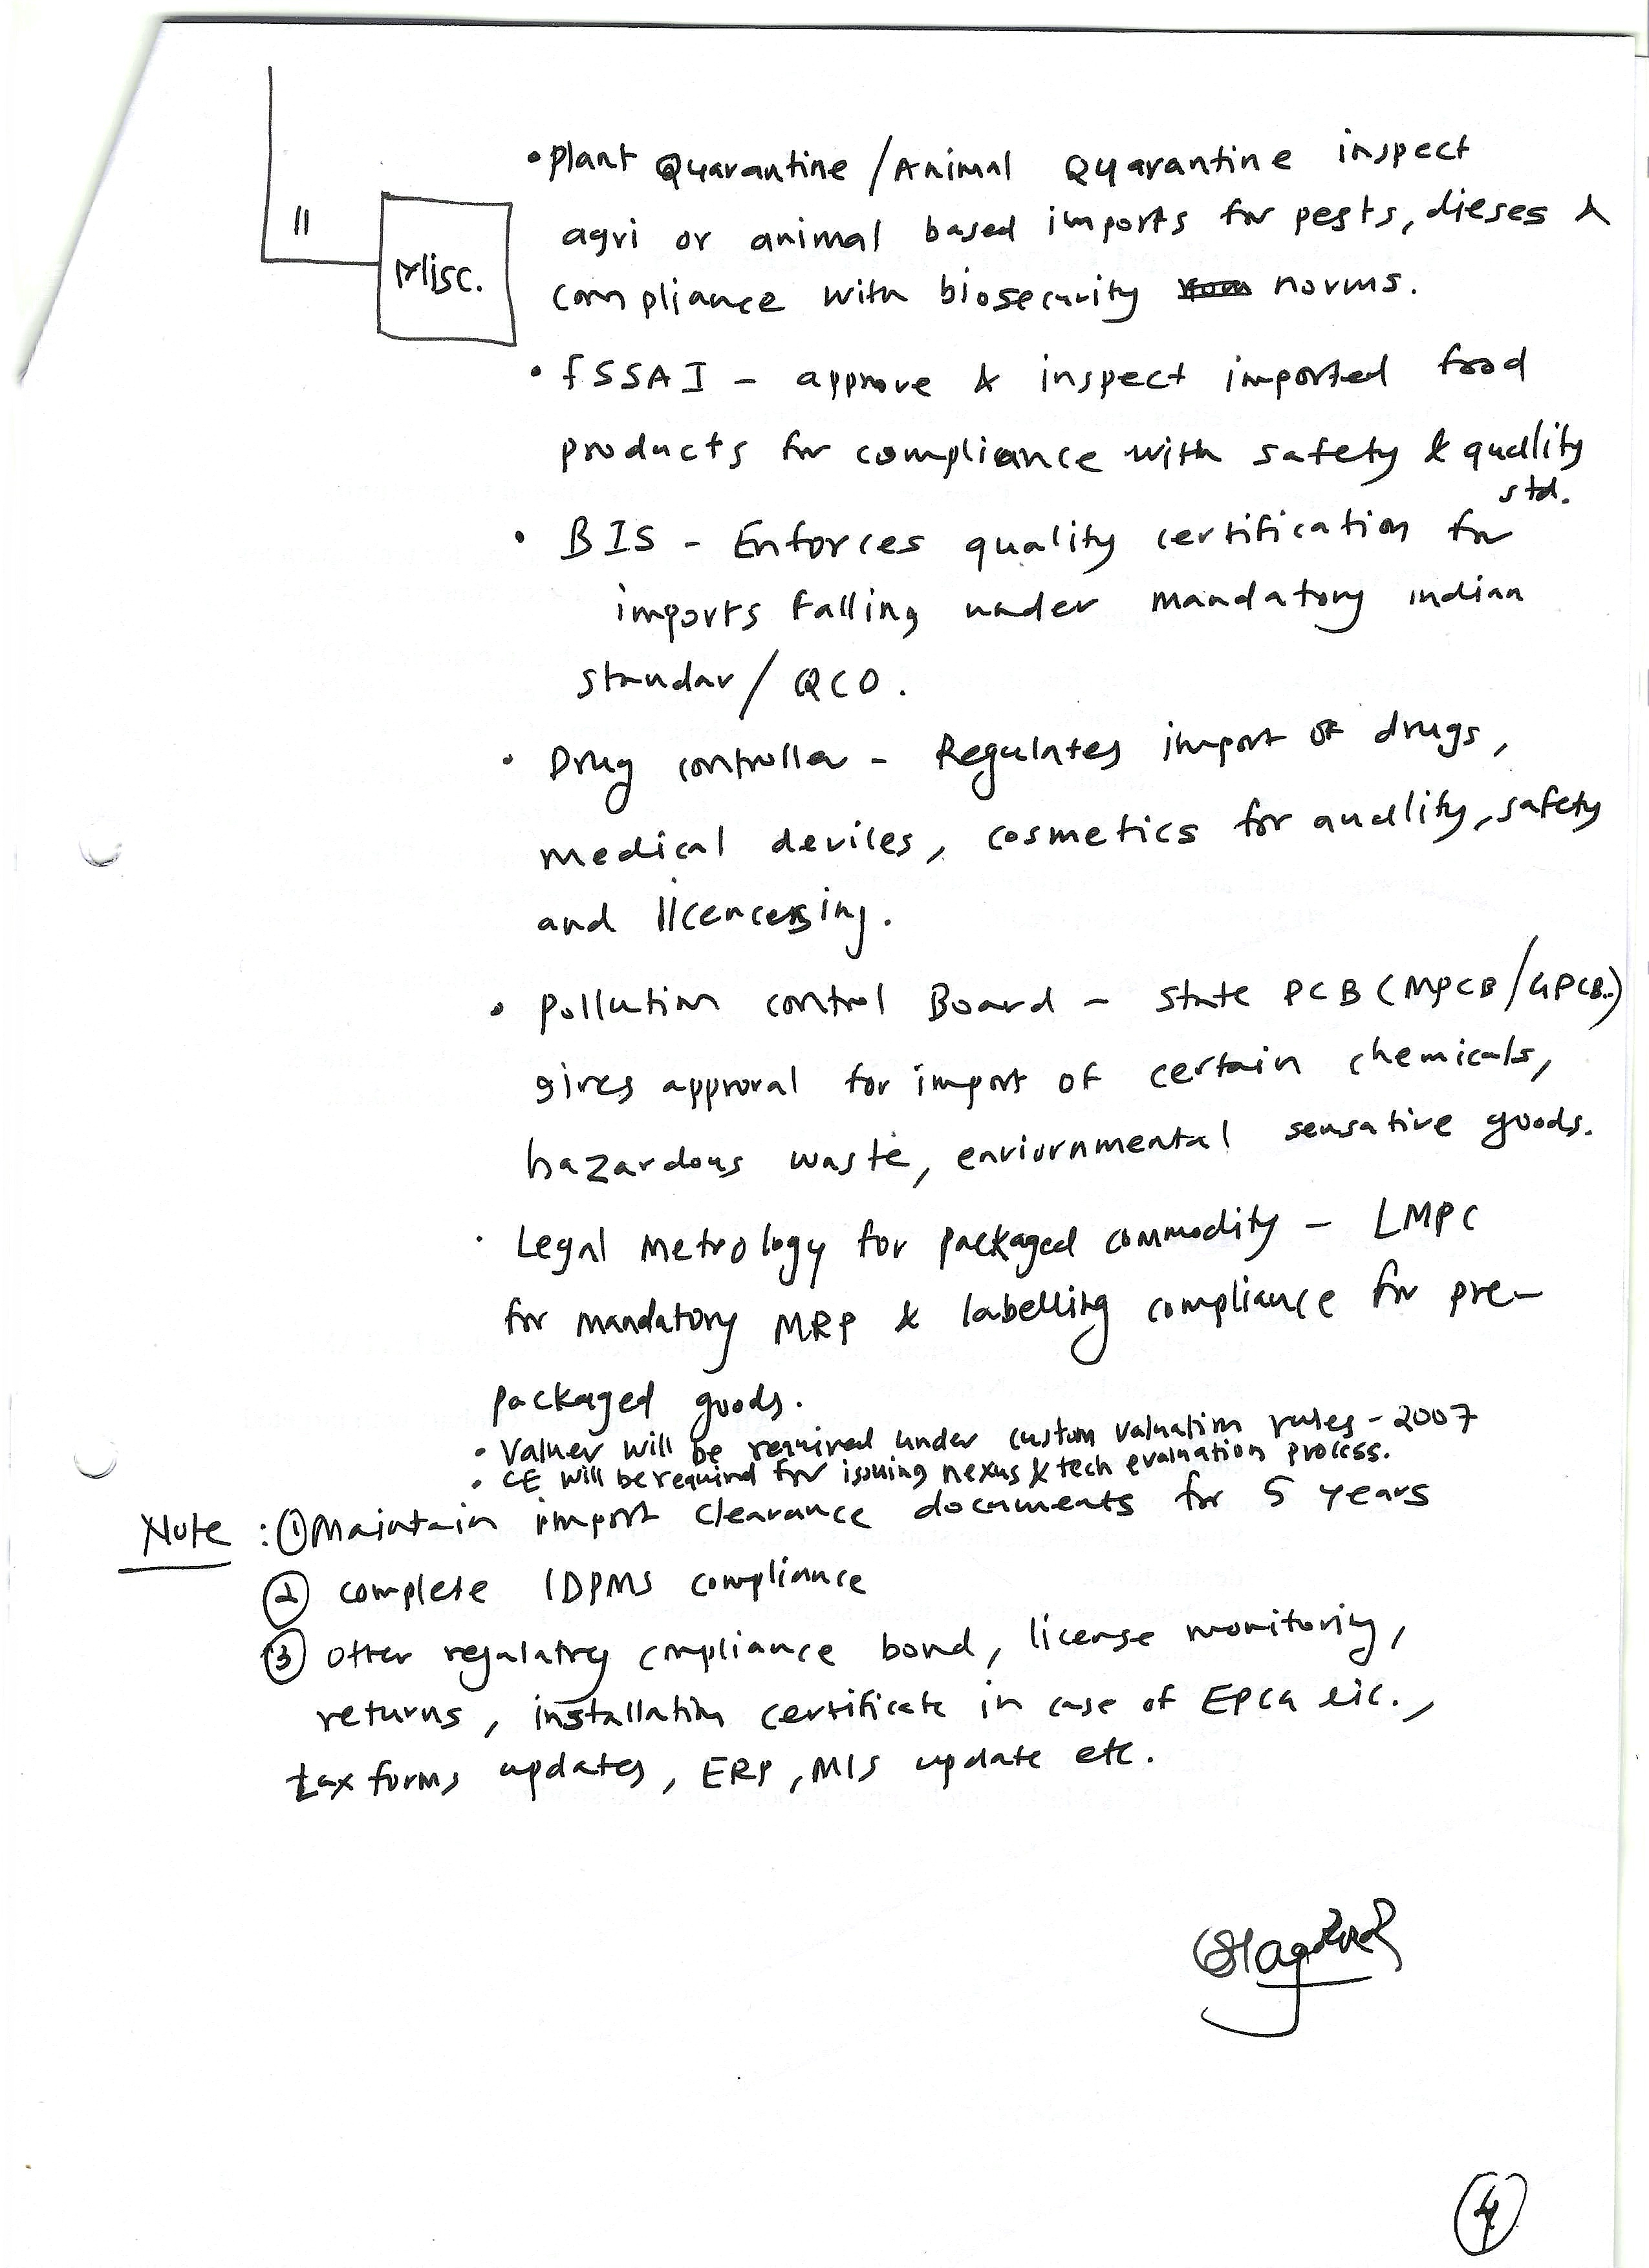 • Plant Quarantine / Animal Quarantine inspect
agri or animal based imports for pests, dieses &
11
Misc.
compliance with biosecurity norms.
• FSSAI - approve & inspect imported food
products for compliance with safety & quality
std.
• BIS - Enforces quality certification for
imports falling under mandatory indian
standar / QCO.
• Drug controller - Regulates import of drugs,
medical devices, cosmetics for quality, safety
and licencesing.
• Pollution control Board - State PCB (MPCB/GPCB..)
gives approval for import of certain chemicals,
hazardous waste, enviornmental sensative goods.
• Legal Metrology for packaged commodity - LMPC
for mandatory MRP & labelling compliance for pre-
packaged goods.
• Valuer will be required under custom valuation rules - 2007
• CE will be required for issuing nexus & tech evaluation process.
Note : ① Maintain import clearance documents for 5 years
② complete IDPMS compliance
③ other regulatry compliance bond, license monitoring,
returns, installation certificate in case of EPCG lic.,
tax forms updates, ERP, MIS update etc.
4